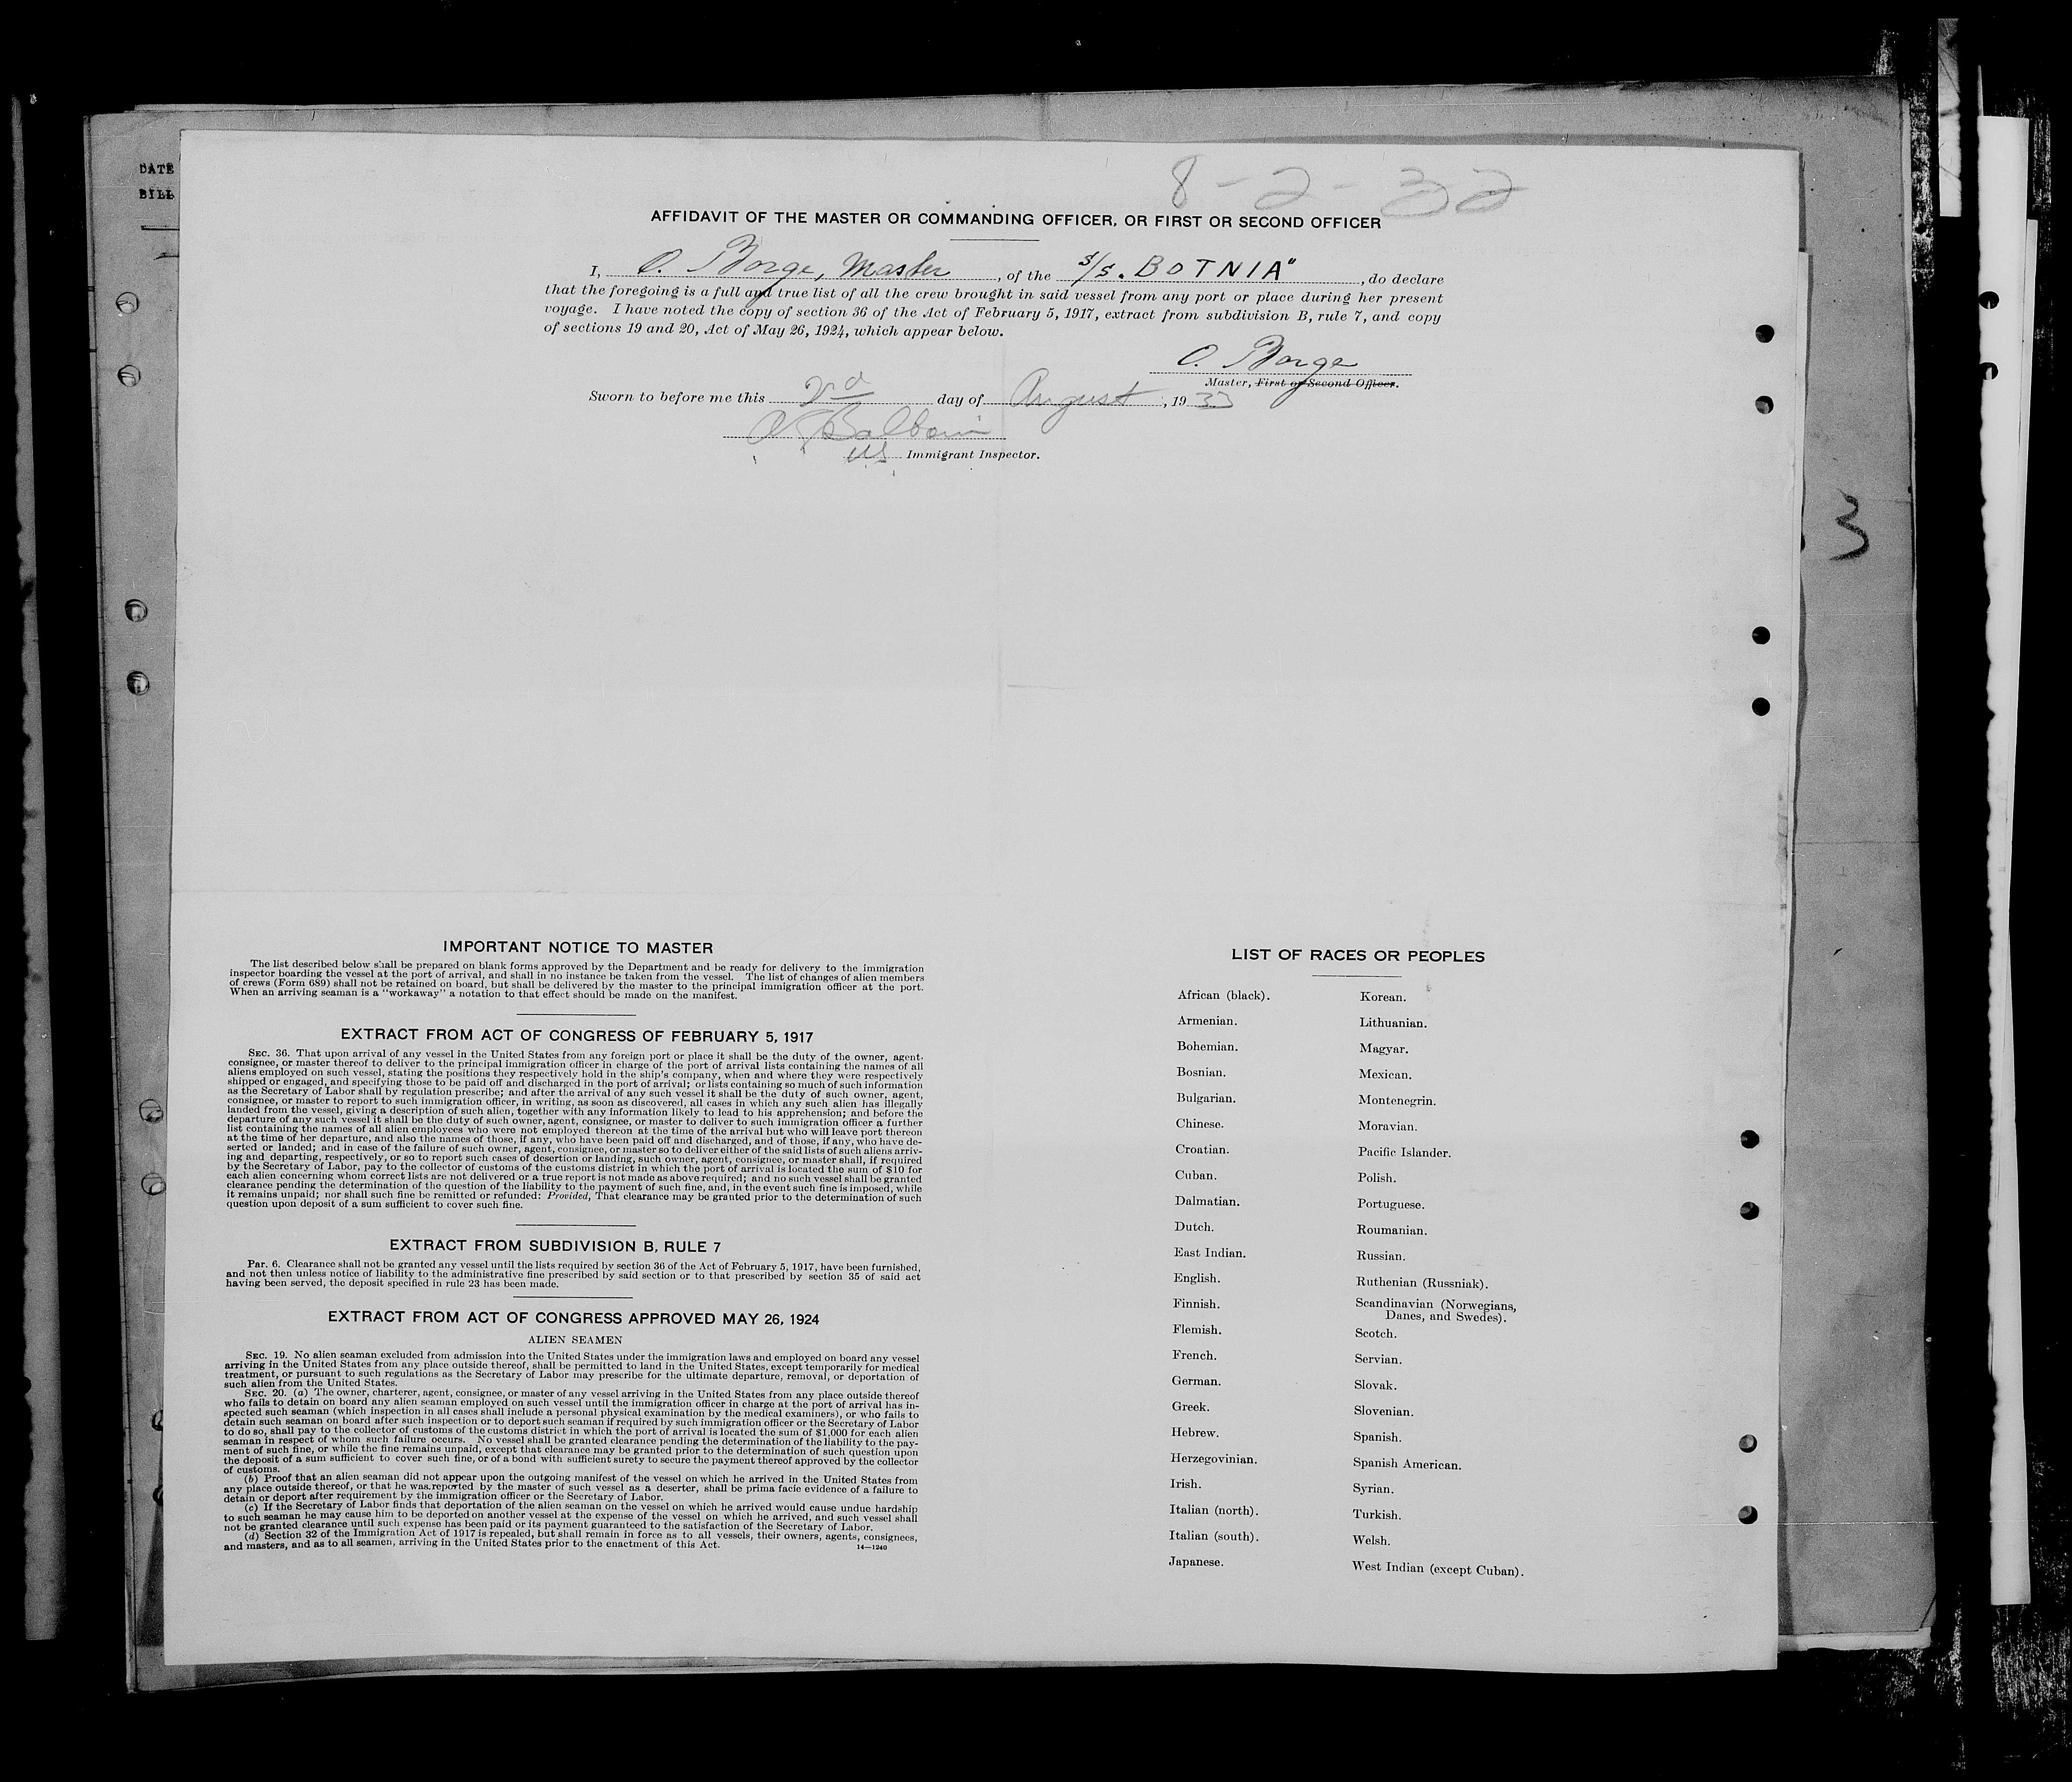 DATE
BILL
8-2-33
AFFIDAVIT OF THE MASTER OR COMMANDING OFFICER, OR FIRST OR SECOND OFFICER
I, O. Borge, Master, of the S/S. BOTNIA", do declare
that the foregoing is a full and true list of all the crew brought in said vessel from any port or place during her present
voyage. I have noted the copy of section 36 of the Act of February 5, 1917, extract from subdivision B, rule 7, and copy
of sections 19 and 20, Act of May 26, 1924, which appear below.
O. Borge
Master, First or Second Officer.
Sworn to before me this 2nd day of August, 1933
Immigrant Inspector.
3
IMPORTANT NOTICE TO MASTER
The list described below shall be prepared on blank forms approved by the Department and be ready for delivery to the immigration
inspector boarding the vessel at the port of arrival, and shall in no instance be taken from the vessel. The list of changes of alien members
of crews (Form 689) shall not be retained on board, but shall be delivered by the master to the principal immigration officer at the port.
When an arriving seaman is a "workaway" a notation to that effect should be made on the manifest.
EXTRACT FROM ACT OF CONGRESS OF FEBRUARY 5, 1917
SEC. 36. That upon arrival of any vessel in the United States from any foreign port or place it shall be the duty of the owner, agent,
consignee, or master thereof to deliver to the principal immigration officer in charge of the port of arrival lists containing the names of all
aliens employed on such vessel, stating the positions they respectively hold in the ship's company, when and where they were respectively
shipped or engaged, and specifying those to be paid off and discharged in the port of arrival; or lists containing so much of such information
as the Secretary of Labor shall by regulation prescribe; and after the arrival of any such vessel it shall be the duty of such owner, agent,
consignee, or master to report to such immigration officer, in writing, as soon as discovered, all cases in which any such alien has illegally
landed from the vessel, giving a description of such alien, together with any information likely to lead to his apprehension; and before the
departure of any such vessel it shall be the duty of such owner, agent, consignee, or master to deliver to such immigration officer a further
list containing the names of all alien employees who were not employed thereon at the time of the arrival but who will leave port thereon
at the time of her departure, and also the names of those, if any, who have been paid off and discharged, and of those, if any, who have de-
serted or landed; and in case of the failure of such owner, agent, consignee, or master so to deliver either of the said lists of such aliens arriv-
ing and departing, respectively, or so to report such cases of desertion or landing, such owner, agent, consignee, or master shall, if required
by the Secretary of Labor, pay to the collector of customs of the customs district in which the port of arrival is located the sum of $10 for
each alien concerning whom correct lists are not delivered or a true report is not made as above required; and no such vessel shall be granted
clearance pending the determination of the question of the liability to the payment of such fine, and, in the event such fine is imposed, while
it remains unpaid; nor shall such fine be remitted or refunded: Provided, That clearance may be granted prior to the determination of such
question upon deposit of a sum sufficient to cover such fine.
EXTRACT FROM SUBDIVISION B, RULE 7
PAR. 6. Clearance shall not be granted any vessel until the lists required by section 36 of the Act of February 5, 1917, have been furnished,
and not then unless notice of liability to the administrative fine prescribed by said section or to that prescribed by section 35 of said act
having been served, the deposit specified in rule 23 has been made.
EXTRACT FROM ACT OF CONGRESS APPROVED MAY 26, 1924
ALIEN SEAMEN
SEC. 19. No alien seaman excluded from admission into the United States under the immigration laws and employed on board any vessel
arriving in the United States from any place outside thereof, shall be permitted to land in the United States, except temporarily for medical
treatment, or pursuant to such regulations as the Secretary of Labor may prescribe for the ultimate departure, removal, or deportation of
such alien from the United States.
SEC. 20. (a) The owner, charterer, agent, consignee, or master of any vessel arriving in the United States from any place outside thereof
who fails to detain on board any alien seaman employed on such vessel until the immigration officer in charge at the port of arrival has in-
spected such seaman (which inspection in all cases shall include a personal physical examination by the medical examiners), or who fails to
detain such seaman on board after such inspection or to deport such seaman if required by such immigration officer or the Secretary of Labor
to do so, shall pay to the collector of customs of the customs district in which the port of arrival is located the sum of $1,000 for each alien
seaman in respect of whom such failure occurs. No vessel shall be granted clearance pending the determination of the liability to the pay-
ment of such fine, or while the fine remains unpaid, except that clearance may be granted prior to the determination of such question upon
the deposit of a sum sufficient to cover such fine, or of a bond with sufficient surety to secure the payment thereof approved by the collector
of customs.
(b) Proof that an alien seaman did not appear upon the outgoing manifest of the vessel on which he arrived in the United States from
any place outside thereof, or that he was reported by the master of such vessel as a deserter, shall be prima facie evidence of a failure to
detain or deport after requirement by the immigration officer or the Secretary of Labor.
(c) If the Secretary of Labor finds that deportation of the alien seaman on the vessel on which he arrived would cause undue hardship
to such seaman he may cause him to be deported on another vessel at the expense of the vessel on which he arrived, and such vessel shall
not be granted clearance until such expense has been paid or its payment guaranteed to the satisfaction of the Secretary of Labor.
(d) Section 32 of the Immigration Act of 1917 is repealed, but shall remain in force as to all vessels, their owners, agents, consignees,
and masters, and as to all seamen, arriving in the United States prior to the enactment of this Act.
14—1240
LIST OF RACES OR PEOPLES
African (black).
Armenian.
Bohemian.
Bosnian.
Bulgarian.
Chinese.
Croatian.
Cuban.
Dalmatian.
Dutch.
East Indian.
English.
Finnish.
Flemish.
French.
German.
Greek.
Hebrew.
Herzegovinian.
Irish.
Italian (north).
Italian (south).
Japanese.
Korean.
Lithuanian.
Magyar.
Mexican.
Montenegrin.
Moravian.
Pacific Islander.
Polish.
Portuguese.
Roumanian.
Russian.
Ruthenian (Russniak).
Scandinavian (Norwegians,
Danes, and Swedes).
Scotch.
Servian.
Slovak.
Slovenian.
Spanish.
Spanish American.
Syrian.
Turkish.
Welsh.
West Indian (except Cuban).